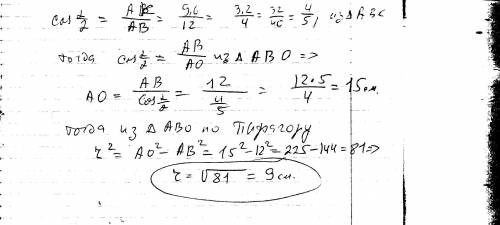 cos α/2 = AK/AB = 9,6/12 = 3,2/4 = 32/40 = 4/5, из Δ ABK
тогда cos α/2 = AB/AO из Δ ABO =>
AO = AB/cos α/2 = 12/(4/5) = 12·5/4 = 15 см.
тогда из Δ ABO по Пифагору
r² = AO² - AB² = 15² - 12² = 225 - 144 = 81 =>
r = √81 = 9 см.